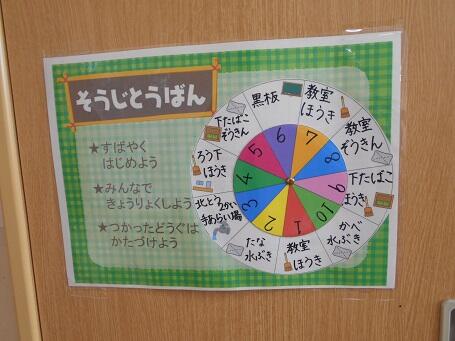 そうじとうばん
★すばやく
はじめよう
★みんなで
きょうりょくしよう
★つかったどうぐは
かたづけよう
黒板
教室
ほうき
教室
ぞうきん
下たばこ
ほうき
かべ
水ぶき
教室
ほうき
たな
水ぶき
北とう2かい
手あらい場
ろう下
ほうき
下たばこ
ぞうきん
6
7
8
9
10
1
2
3
4
5